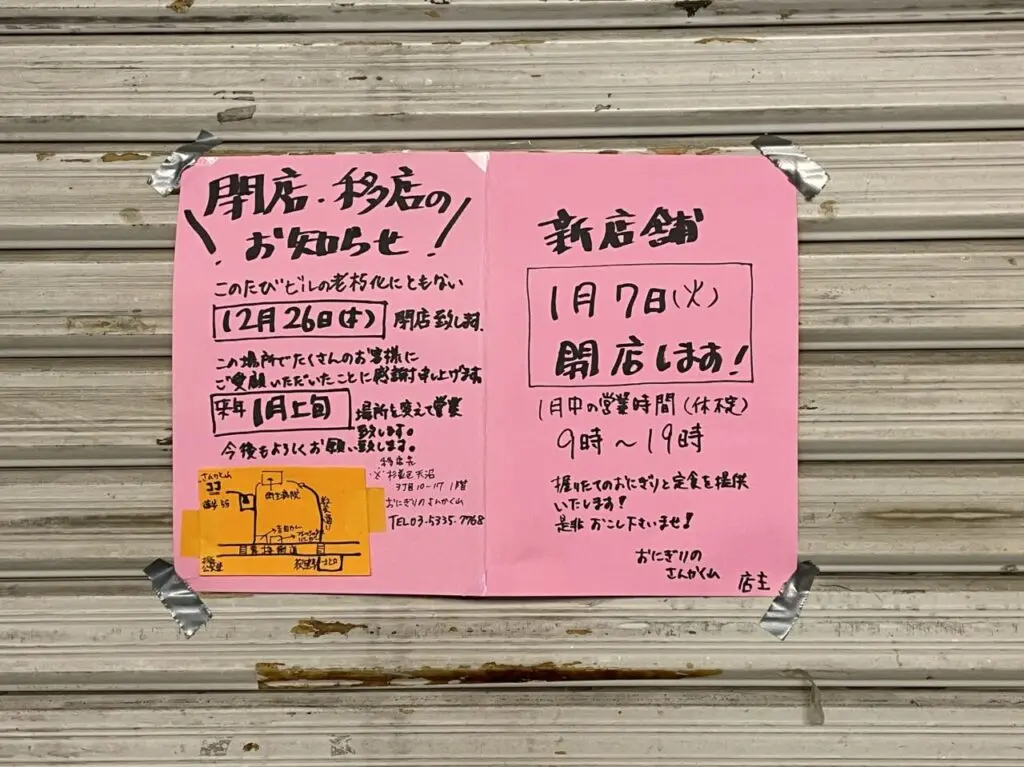 閉店・移店の
お知らせ!
このたびビルの老朽化にともない
12月26日(木) 閉店致します.
この場所でたくさんのお客様に
ご愛顧いただいたことに感謝申し上げます
来年1月上旬 場所を変えて営業
致します。
今後もよろしくお願い致します。
移店先
杉並区天沼
3丁目10-17 1階
おにぎりのさんかく山
TEL03-5335-7768
さんかく山
ココ
青梅街道
新店舗
1月7日(火)
開店します!
1月中の営業時間(休検)
9時~19時
握りたてのおにぎりと定食を提供
いたします!
是非おこし下さいませ!
おにぎりの
さんかく山
店主